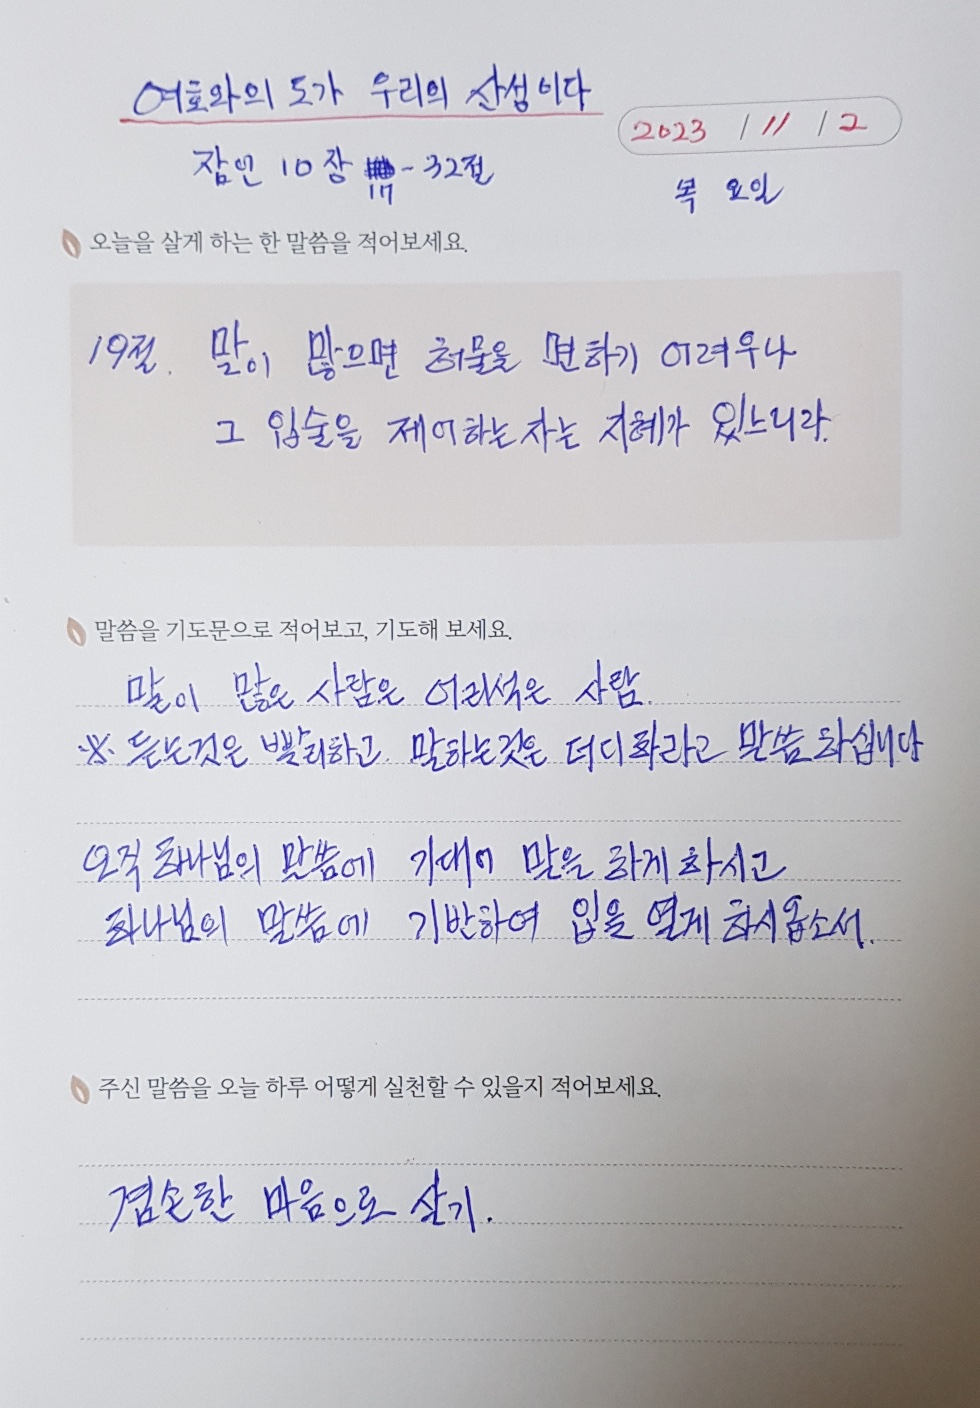 여호와의 도가 우리의 산성이다
2023 / 11 / 2
잠언 10장 17 - 32절
목요일
오늘을 살게 하는 한 말씀을 적어보세요.
19절. 말이 많으면 허물을 면하기 어려우나
그 입술을 제어하는 자는 지혜가 있느니라.
말씀을 기도문으로 적어보고, 기도해 보세요.
말이 많은 사람은 어리석은 사람.
※ 듣는것은 빨리하고 말하는것은 더디하라고 말씀하십니다
오직 하나님의 말씀에 기대어 말을 하게 하시고
하나님의 말씀에 기반하여 입을 열게 하시옵소서.
주신 말씀을 오늘 하루 어떻게 실천할 수 있을지 적어보세요.
겸손한 마음으로 살기.